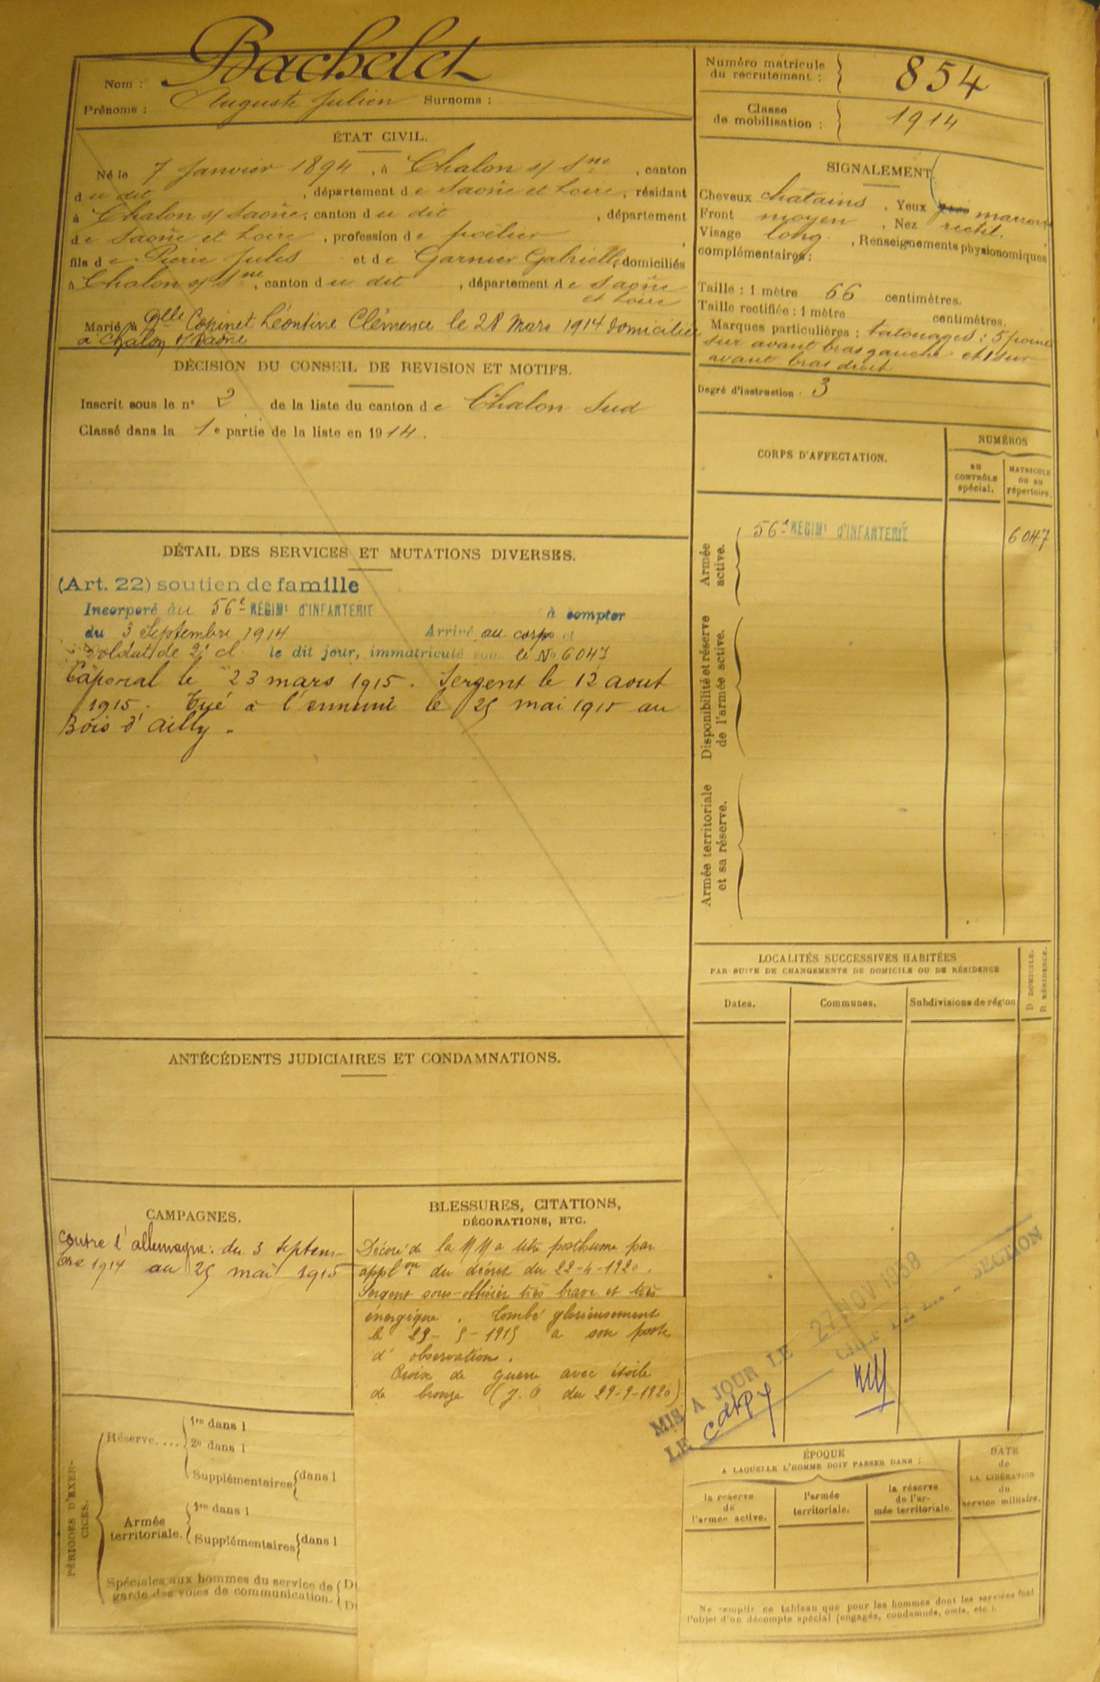 Nom : Bachelet
Prénoms : Auguste Julien Surnoms :
ÉTAT CIVIL.
Né le 7 Janvier 1894, à Chalon s/ Sne, canton
du dit, département de Saône et Loire, résidant
à Chalon s/ Saône, canton du dit, département
de Saône et Loire, profession de poêlier,
fils de Pierre Jules et de Garnier Gabrielle, domiciliés
à Chalon s/ Sne, canton du dit, département de Saône
et Loire
Marié à Dlle Copinet Léontine Clémence le 28 Mars 1914 domiciliée
à Chalon s/ Saône
DÉCISION DU CONSEIL DE REVISION ET MOTIFS.
Inscrit sous le n° 2 de la liste du canton de Chalon Sud
Classé dans la 1e partie de la liste en 1914.
DÉTAIL DES SERVICES ET MUTATIONS DIVERSES.
(Art. 22) soutien de famille
Incorporé au 56e RÉGIMt D'INFANTERIE à compter
du 3 Septembre 1914 Arrivé au corps et
soldat de 2e cl. le dit jour, immatriculé sous le No 6047
Caporal le 23 mars 1915. Sergent le 12 aout
1915. Tué à l'ennemi le 25 mai 1915 au
Bois d'Ailly.
ANTÉCÉDENTS JUDICIAIRES ET CONDAMNATIONS.
CAMPAGNES.
Contre l'allemagne: du 3 septem-
bre 1914 au 25 mai 1915
BLESSURES, CITATIONS,
DÉCORATIONS, ETC.
Décoré de la MM a titre posthume par
applon du décret du 22-4-1920.
Sergent sous-officier très brave et très
énergique. Tombé glorieusement
le 25-5-1915 a son poste
d'observation.
Croix de guerre avec étoile
de bronze (J.O du 29-9-1920)
PÉRIODES D'EXER-
CICES.
Réserve....
1re dans l
2e dans l
Supplémentaires dans l
Armée
territoriale.
1re dans l
Supplémentaires dans l
Spéciales aux hommes du service de
garde des voies de communication.
Numéro matricule
du recrutement : 854
Classe
de mobilisation : 1914
SIGNALEMENT
Cheveux châtains. Yeux marrons
Front moyen, Nez rectil.
Visage long, Renseignements physionomiques
complémentaires:
Taille : 1 mètre 66 centimètres.
Taille rectifiée : 1 mètre centimètres.
Marques particulières : tatouages : 5 points
sur avant bras gauche et 1 sur
avant bras droit
Degré d'instruction : 3
CORPS D'AFFECTATION.
NUMÉROS
AU
CONTRÔLE
spécial.
MATRICULE
OU AU
répertoire.
Armée
active.
56e RÉGIMt D'INFANTERIE 6047
Disponibilité et réserve
de l'armée active.
Armée territoriale
et sa réserve.
LOCALITÉS SUCCESSIVES HABITÉES
PAR SUITE DE CHANGEMENTS DE DOMICILE OU DE RÉSIDENCE
D. DOMICILE.
R. RÉSIDENCE.
Dates.
Communes.
Subdivisions de région
MIS A JOUR LE 2 NOV 1938
LE SECTION
ÉPOQUE
A LAQUELLE L'HOMME DOIT PASSER DANS :
la réserve
de
l'armée active.
l'armée
territoriale.
la réserve
de l'ar-
mée territoriale.
DATE
de
LA LIBÉRATION
du
service militaire.
Ne remplir ce tableau que pour les hommes dont les services font
l'objet d'un décompte spécial (engagés, condamnés, omis, etc.).